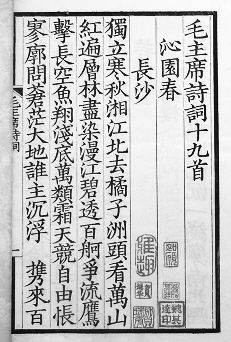 毛主席詩詞十九首
沁園春
長沙
獨立寒秋湘江北去橘子洲頭看萬山
紅遍層林盡染漫江碧透百舸爭流鷹
擊長空魚翔淺底萬類霜天競自由悵
寥廓問蒼茫大地誰主沉浮 攜來百
毛主席詩詞
一